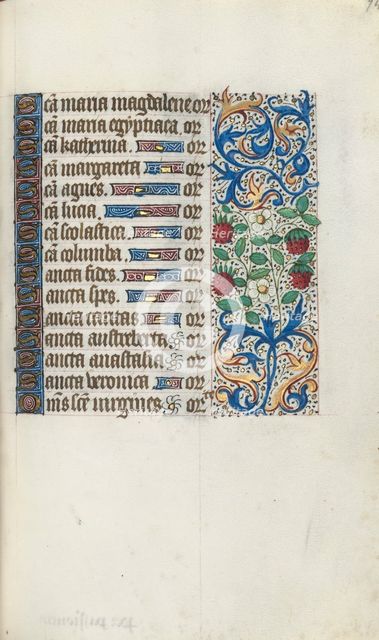 Scā maria magdalene or
Scā maria egyptiaca. or
Scā katherina. or
Scā margareta or
Scā agnes. or
Scā lucia. or
Scā scolastica. or
Scā columba. or
Sancta fides. or
Sancta spes. or
Sancta caritas or
Sancta austreberta. or
Sancta anastasia. or
Sancta veronica. or
Om̄s scē virgines. or